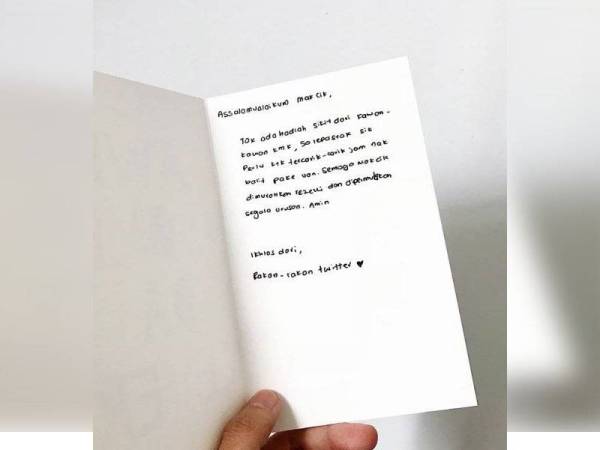 Assalamualaikum makcik,
Tok ada hadiah sikit dari kawan-
kawan kmk, So lepastok sik
Perlu ktk tercarik-carik jam nak
pake
van. Semoga makcik
dimurahkan rezeki dan dipermudahkan
segala urusan. Amin
Ikhlas dari,
Rakan-rakan twitter ♥